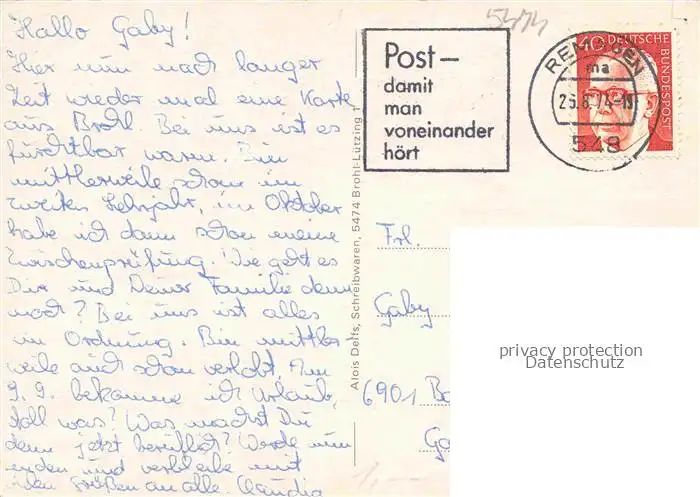 Hallo Gaby!
Hier nun nach langer
Zeit wieder mal eine Karte
aus Brohl Bei uns ist es
furchtbar warm. Bin
mittlerweile schon im
zweiten Lehrjahr, im Oktober
habe ich dann schon meine
Zwischenprüfung. Wie geht es
Dir und Deiner Familie denn
noch? Bei uns ist alles
in Ordnung. Bin mittler-
weile auch schon verlobt. Am
9.9. bekomme ich Urlaub,
toll was? Was machst Du
denn jetzt beruflich? Werde nun
enden und verbleibe mit
vielen Grüßen an alle. Claudia
Alois Delfs, Schreibwaren, 5474 Brohl-Lützing
5474
Post—
damit
man
voneinander
hört
REMAGEN
ma
26.8.74-18
548
40 DEUTSCHE
BUNDESPOST
Frl.
Gaby
6901 Ba
Ga
1,—
privacy protection
Datenschutz